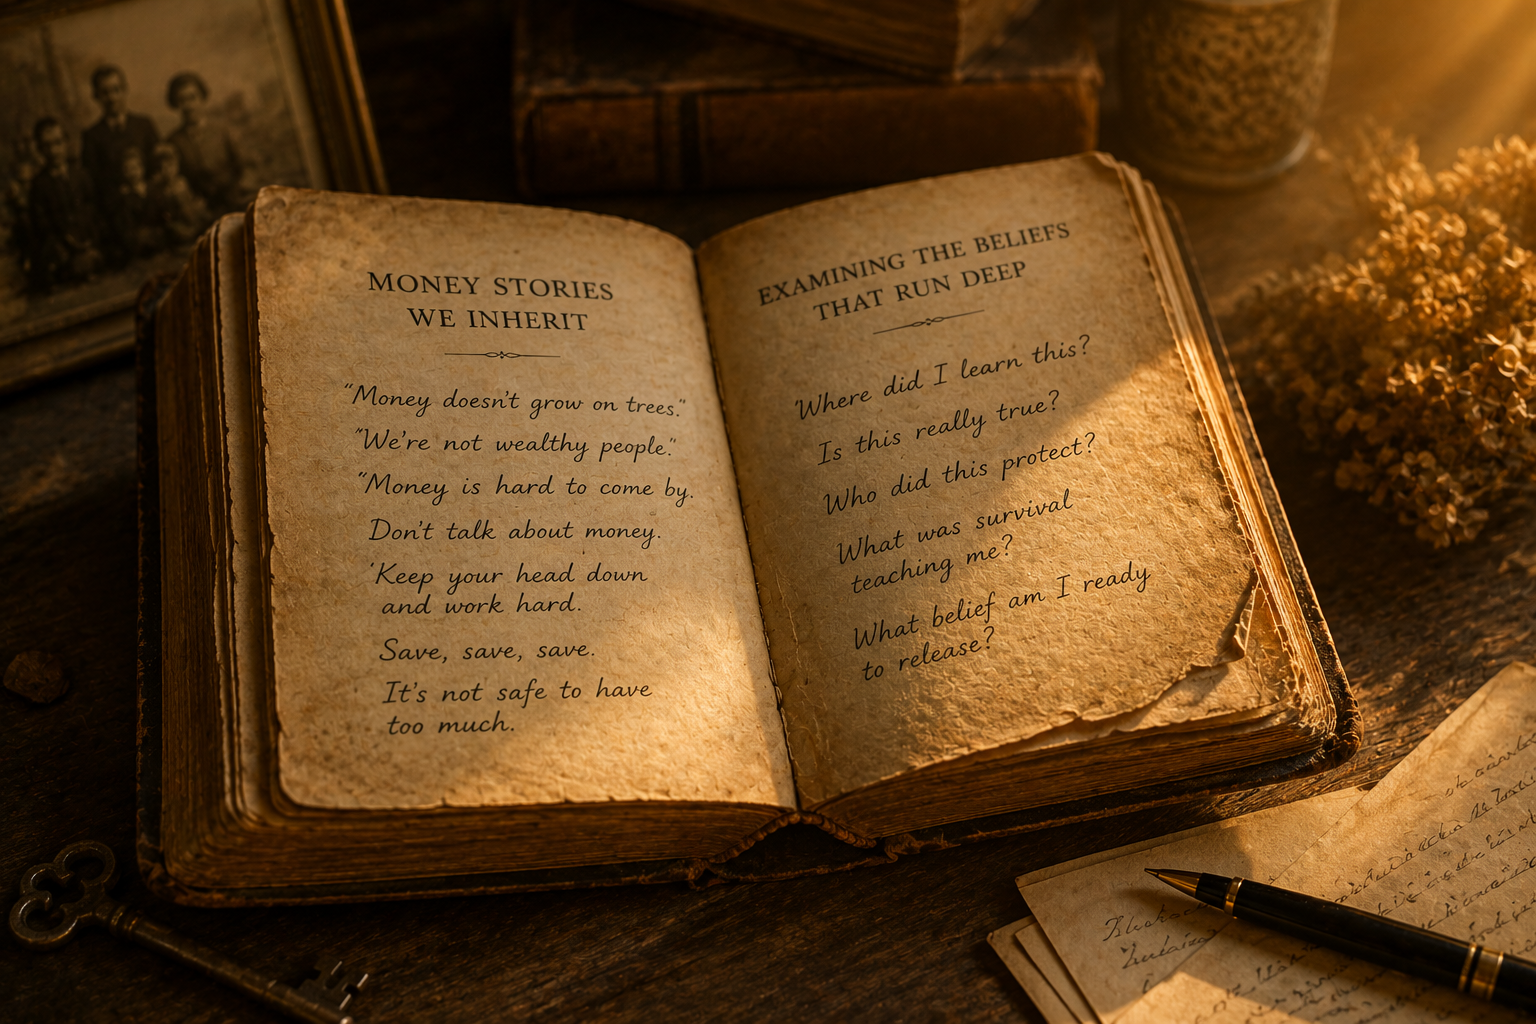 MONEY STORIES
WE INHERIT
"Money doesn't grow on trees."
"We're not wealthy people."
"Money is hard to come by.
Don't talk about money.
'Keep your head down
and work hard.
Save, save, save.
It's not safe to have
too much.
EXAMINING THE BELIEFS
THAT RUN DEEP
'Where did I learn this?
Is this really true?
Who did this protect?
What was survival
teaching me?
What belief am I ready
to release?